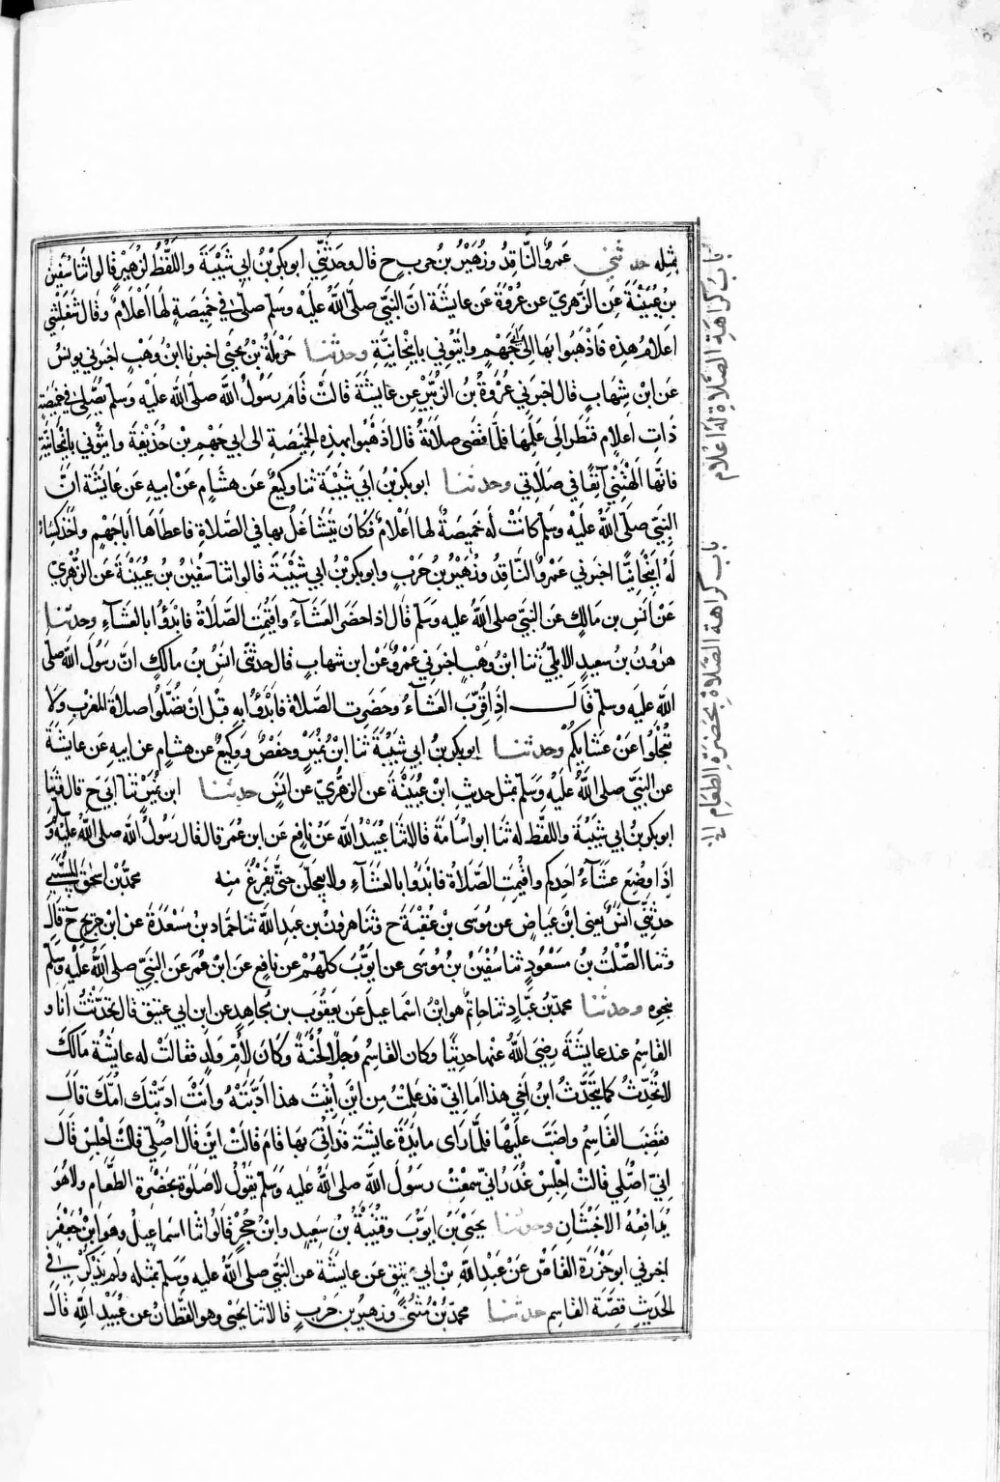 بمثله حدثني عمرو الناقد وزهير بن حرب ح قال وحدثني ابو بكر بن ابي شيبة واللفظ لزهير قالوا ثنا سفين
بن عيينة عن الزهري عن عروة عن عايشة ان النبي صلى الله عليه وسلم صلى في خميصة لها اعلام وقال شغلتني
اعلام هذه فاذهبوا بها الى ابي جهم وايتوني بانبجانية وحدثنا حرملة بن يحيى اخبرنا ابن وهب اخبرني يونس
عن ابن شهاب قال اخبرني عروة بن الزبير عن عايشة قالت قام رسول الله صلى الله عليه وسلم يصلي في خميصة
ذات اعلام فنظر الى علمها فلما قضى صلاته قال اذهبوا بهذه الخميصة الى ابي جهم بن حذيفة وايتوني بانبجانية
فانها الهتني آنفا في صلاتي وحدثنا ابو بكر بن ابي شيبة ثنا وكيع عن هشام عن ابيه عن عايشة ان
النبي صلى الله عليه وسلم كانت له خميصة لها اعلام فكان يتشاغل بها في الصلاة فاعطاها اباجهم واخذ كساء
له انبجانيا اخبرني عمرو الناقد وزهير بن حرب وابو بكر بن ابي شيبة قالوا ثنا سفين بن عيينة عن الزهري
عن انس بن مالك عن النبي صلى الله عليه وسلم قال اذا حضر العشآء واقيمت الصلاة فابدؤا بالعشآء وحدثنا
هرون بن سعيد الايلي ثنا ابن وهب اخبرني عمرو عن ابن شهاب قال حدثني انس بن مالك ان رسول الله صلى
الله عليه وسلم قال اذا قرب العشآء وحضرت الصلاة فابدؤا به قبل ان تصلوا صلاة المغرب ولا
تعجلوا عن عشايكم وحدثنا ابو بكر بن ابي شيبة ثنا ابن نمير وحفص ووكيع عن هشام عن ابيه عن عايشة
عن النبي صلى الله عليه وسلم بمثل حديث ابن عيينة عن الزهري عن انس حدثنا ابن نمير ثنا ابي ح قال وثنا
ابو بكر بن ابي شيبة واللفظ له ثنا ابو اسامة قالا ثنا عبيد الله عن نافع عن ابن عمر قال قال رسول الله صلى الله عليه وسلم
اذا وضع عشآء احدكم واقيمت الصلاة فابدوا بالعشآء ولا يعجلن حتى يفرغ منه محمد بن اسحق المسيبي
حدثني انس يعني ابن عياض عن موسى بن عقبة ح وثنا هرون بن عبد الله ثنا حماد بن مسعدة عن ابن جريج ح قال
وثنا الصلت بن مسعود ثنا سفين بن موسى عن ايوب كلهم عن نافع عن ابن عمر عن النبي صلى الله عليه وسلم
بنحوه وحدثنا محمد بن عباد ثنا حاتم هو ابن اسماعيل عن يعقوب بن مجاهد عن ابن ابي عتيق قال تحدثت انا و
القاسم عند عايشة رضي الله عنها حديثا وكان القاسم رجلا لحنة وكان لأمر ولد فقالت له عايشة مالك
لا تحدث كما يتحدث ابن اخي هذا اما اني قد علمت من اين اتيت هذا ادبته امه وانت ادبتك امك قال
فغضب القاسم واضب عليها فلما راى مايدة عايشة قد اتي بها قام قالت اين قال اصلي قالت اجلس قال
اني اصلي قالت اجلس غدر اني سمعت رسول الله صلى الله عليه وسلم يقول لاصلوة بحضرة الطعام ولا هو
يدافعه الاخبثان وحدثنا يحيى بن ايوب وقتيبة بن سعيد وابن حجر قالوا ثنا اسماعيل وهو ابن جعفر
اخبرني ابو حزرة القاص عن عبد الله بن ابي عتيق عن عايشة عن النبي صلى الله عليه وسلم بمثله ولم يذكر في
الحديث قصة القاسم حدثنا محمد بن مثنى وزهير بن حرب قالا ثنا يحيى وهو القطان عن عبيد الله قال
باب كراهة الصلاة له اعلام
باب كراهة الصلاة بحضرة الطعام